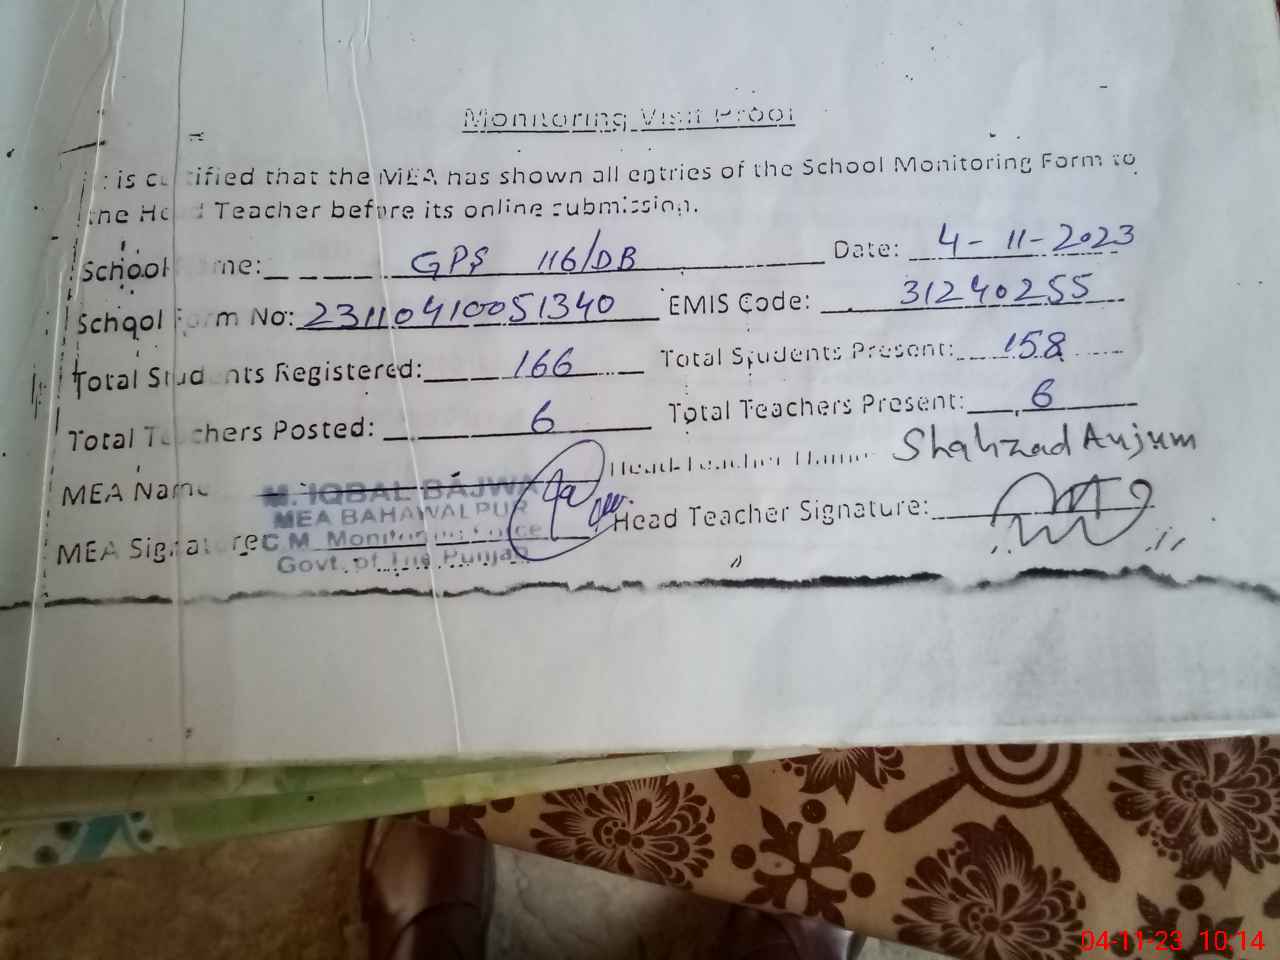 Monitoring Visit Proof
is certified that the MEA has shown all entries of the School Monitoring Form to
the Head Teacher before its online submission.
School Name: GPS 116/DB Date: 4-11-2023
School Form No: 23110410051340 EMIS Code: 31240255
Total Students Registered: 166 Total Students Present: 158
Total Teachers Posted: 6 Total Teachers Present: 6
MEA Name M. IQBAL BAJWA Head Teacher Name Shahzad Anjum
MEA BAHAWALPUR
MEA Signature C.M. Monitoring Force Head Teacher Signature:
Govt. of The Punjab
04-11-23 10:14